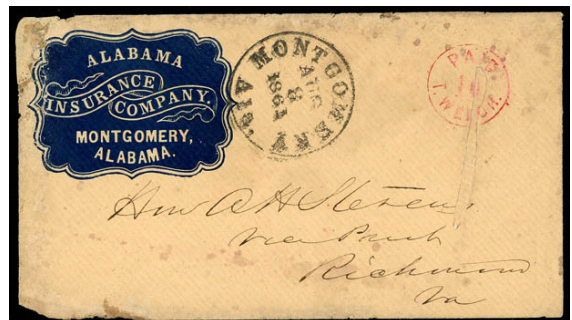 ALABAMA
INSURANCE
COMPANY.
MONTGOMERY,
ALABAMA.
MONTGOMERY ALA.
AUG
8
1861
PAID
10
T. WELCH.
Hon A H Stevens
Vice Prest
Richmond
Va